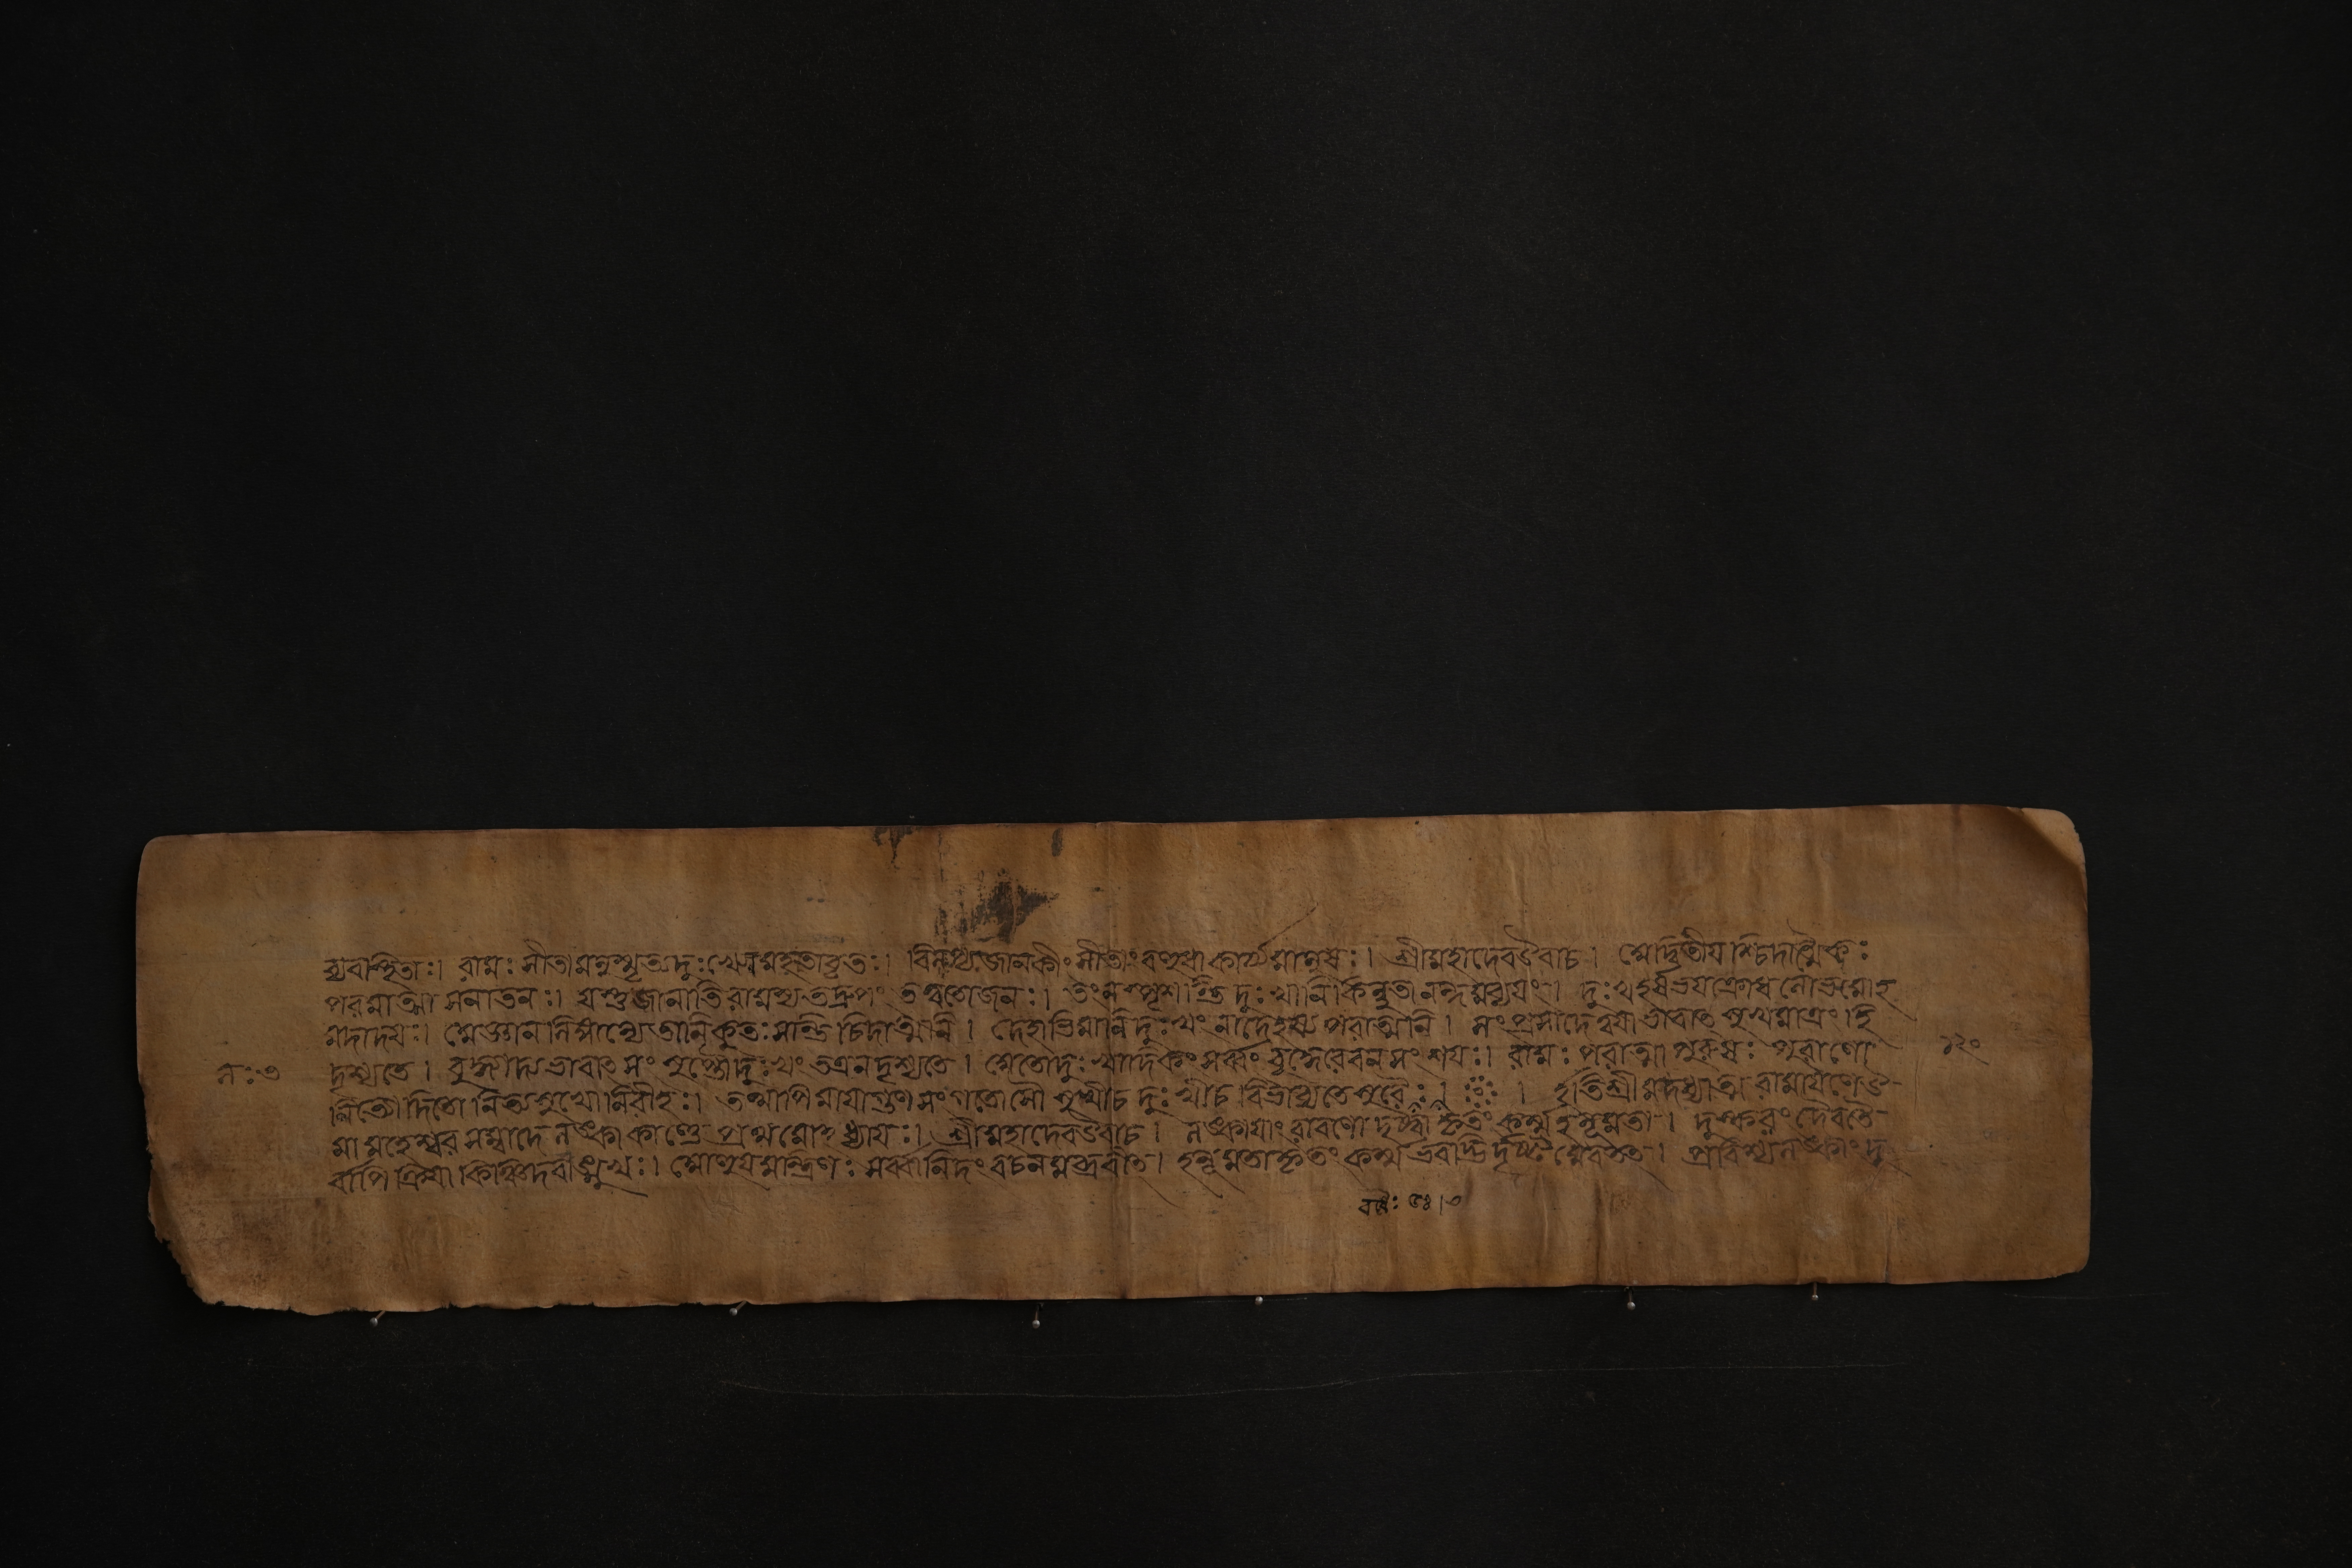 ব্যবস্থিতাঃ। রামঃ সীতামনুস্মৃত্য দুঃখেন মহতাবৃতঃ। বিলপ্য জানকীং সীতাং বহুধা কার্য্যমানুষঃ। শ্রীমহাদেব উবাচ। অদ্বিতীয়শ্চিদাত্মৈকঃ
পরমাত্মা সনাতনঃ। যস্তু জানাতি রামস্য তদ্রূপং তত্ত্বতো জনঃ। তং ন স্পৃশতি দুঃখানি কিমুতানন্দমব্যয়ং। দুঃখহর্ষভয়ক্রোধলোভমোহ
মদাদয়ঃ। অজ্ঞান লিঙ্গান্যেতানি কুতঃ সন্তি চিদাত্মনি। দেহাভিমানি দুঃখং নাদেহস্য পরাত্মনি। সংপ্রসাদে দ্বয়াভাবাৎ সুখমাত্রং হি
দৃশ্যতে। বুদ্ধ্যাদ্যভাবাৎ সংশুদ্ধে দুঃখং তত্র ন দৃশ্যতে। অতো দুঃখাদিকং সর্ব্বং বুদ্ধেরেব ন সংশয়ঃ। রামঃ পরাত্মা পুরুষঃ পুরাণো
নিত্যোদিতো নিত্যসুখো নিরীহঃ। তথাপি মায়াগুণ সংগতোসৌ সুখীচ দুঃখীচ বিভাব্যতে বুধৈঃ। । ইতি শ্রীমদধ্যাত্ম রামায়ণে উ
মামহেশ্বর সম্বাদে লঙ্কাকাণ্ডে প্রথমোহধ্যায়ঃ। শ্রীমহাদেব উবাচ। লঙ্কায়াং রাবণো দৃষ্ট্বা কৃতং কর্ম্ম হনূমতা। দুষ্করং দৈবতৈ
র্বাপি হ্রিয়া কিঞ্চিদবাঙ্মুখঃ। আহূয় মন্ত্রিণঃ সর্ব্বানিদং বচনমব্রবীৎ। হনূমতা কৃতং কর্ম্ম ভবদ্ভির্দৃষ্টমেব তৎ। প্রবিশ্য লঙ্কাং দু
লঃ৩
১২০